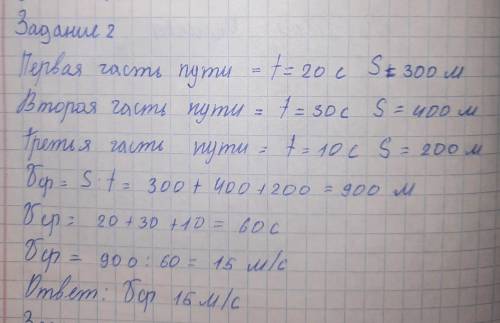 Задание 2
Первая часть пути = t = 20 с S = 300 м
Вторая часть пути = t = 30 с S = 400 м
Третья часть пути = t = 10 с S = 200 м
Ʋср = S : t = 300 + 400 + 200 = 900 м
Ʋср = 20 + 30 + 10 = 60 с
Ʋср = 900 : 60 = 15 м/с
Ответ: Ʋср 15 м/с